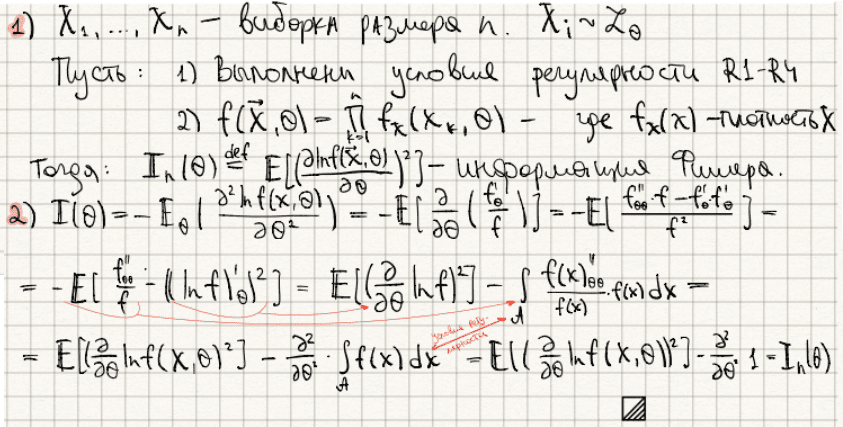 1) X₁, ..., Xₙ – выборка размера n. Xᵢ ~ ℒ_θ
Пусть: 1) Выполнены условия регулярности R1-R4
2) f(X⃗, θ) = ∏_{k=1}^{n} f_X(x_k, θ) – где f_X(x) – плотность X
Тогда: Iₙ(θ) ≝ E[(∂ln f(X⃗, θ)/∂θ)²] – информация Фишера.
2) I(θ) = - E_θ(∂² ln f(x, θ)/∂θ²) = -E[∂/∂θ (f'_θ/f)] = -E[(f''_θθ · f - f'_θ · f'_θ)/f²] =
= -E[f''_θθ/f - ((ln f)'_θ)²] = E[(∂/∂θ ln f)²] - ∫_A f(x)''_θθ/f(x) · f(x) dx =
условия регулярности
= E[(∂/∂θ ln f(X, θ)²] - ∂²/∂θ² · ∫_A f(x) dx = E[((∂/∂θ ln f(X, θ))²] - ∂²/∂θ² · 1 = Iₙ(θ)